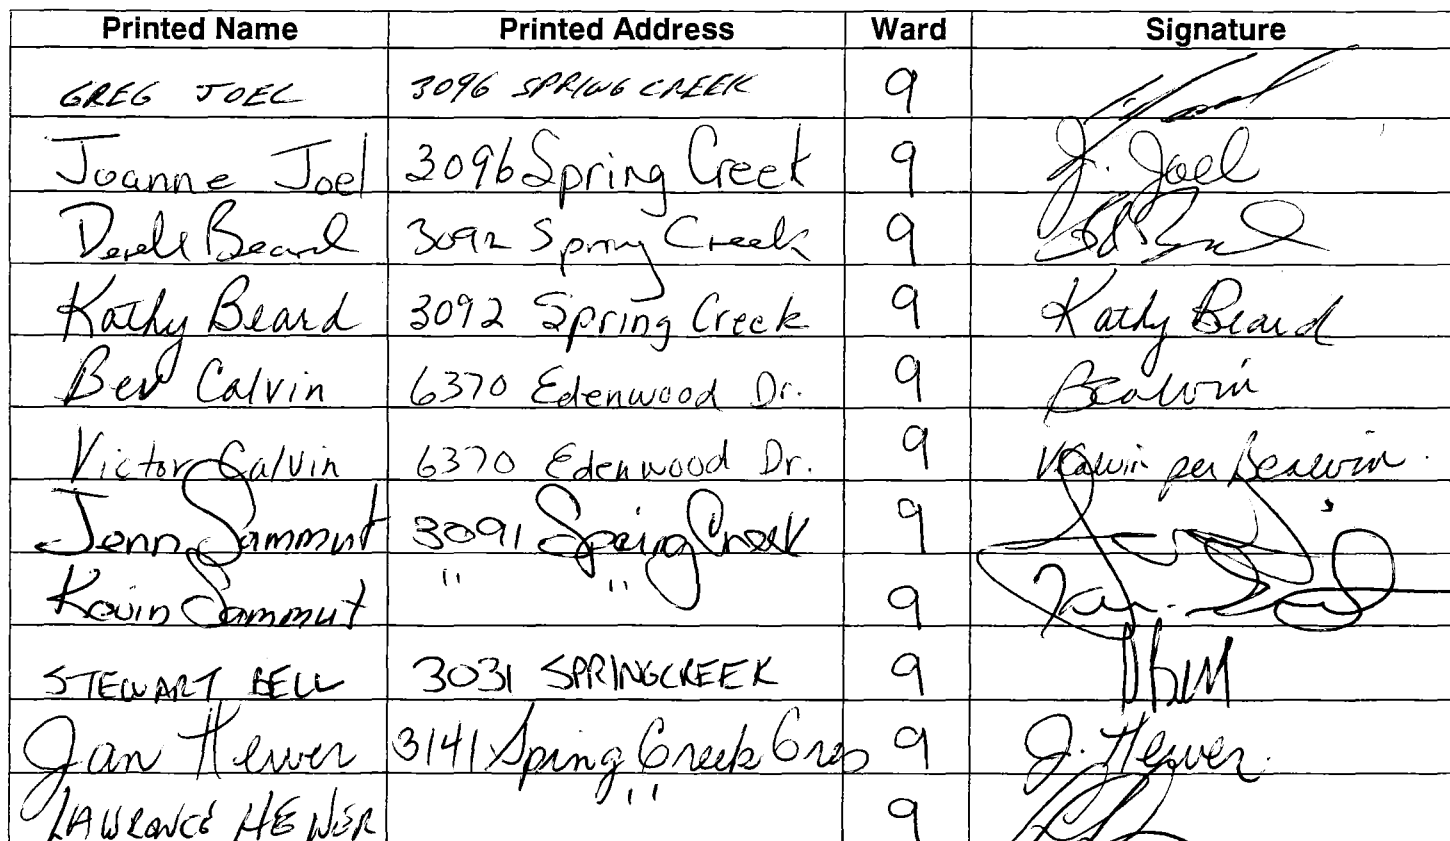 Printed Name Printed Address Ward Signature
GREG JOEL 3096 SPRING CREEK 9
Joanne Joel 3096 Spring Creek 9 J. Joel
Derek Beard 3092 Spring Creek 9
Kathy Beard 3092 Spring Creek 9 Kathy Beard
Bev Calvin 6370 Edenwood Dr. 9 BCalvin
Victor Calvin 6370 Edenwood Dr. 9 VCalvin per BCalvin.
Jenn Sammut 3091 Spring Creek 9
Kevin Sammut " " 9
STEWART BELL 3031 SPRINGCREEK 9
Jan Hewer 3141 Spring Creek Cres 9 J. Hewer.
LAWRENCE HEWER " 9